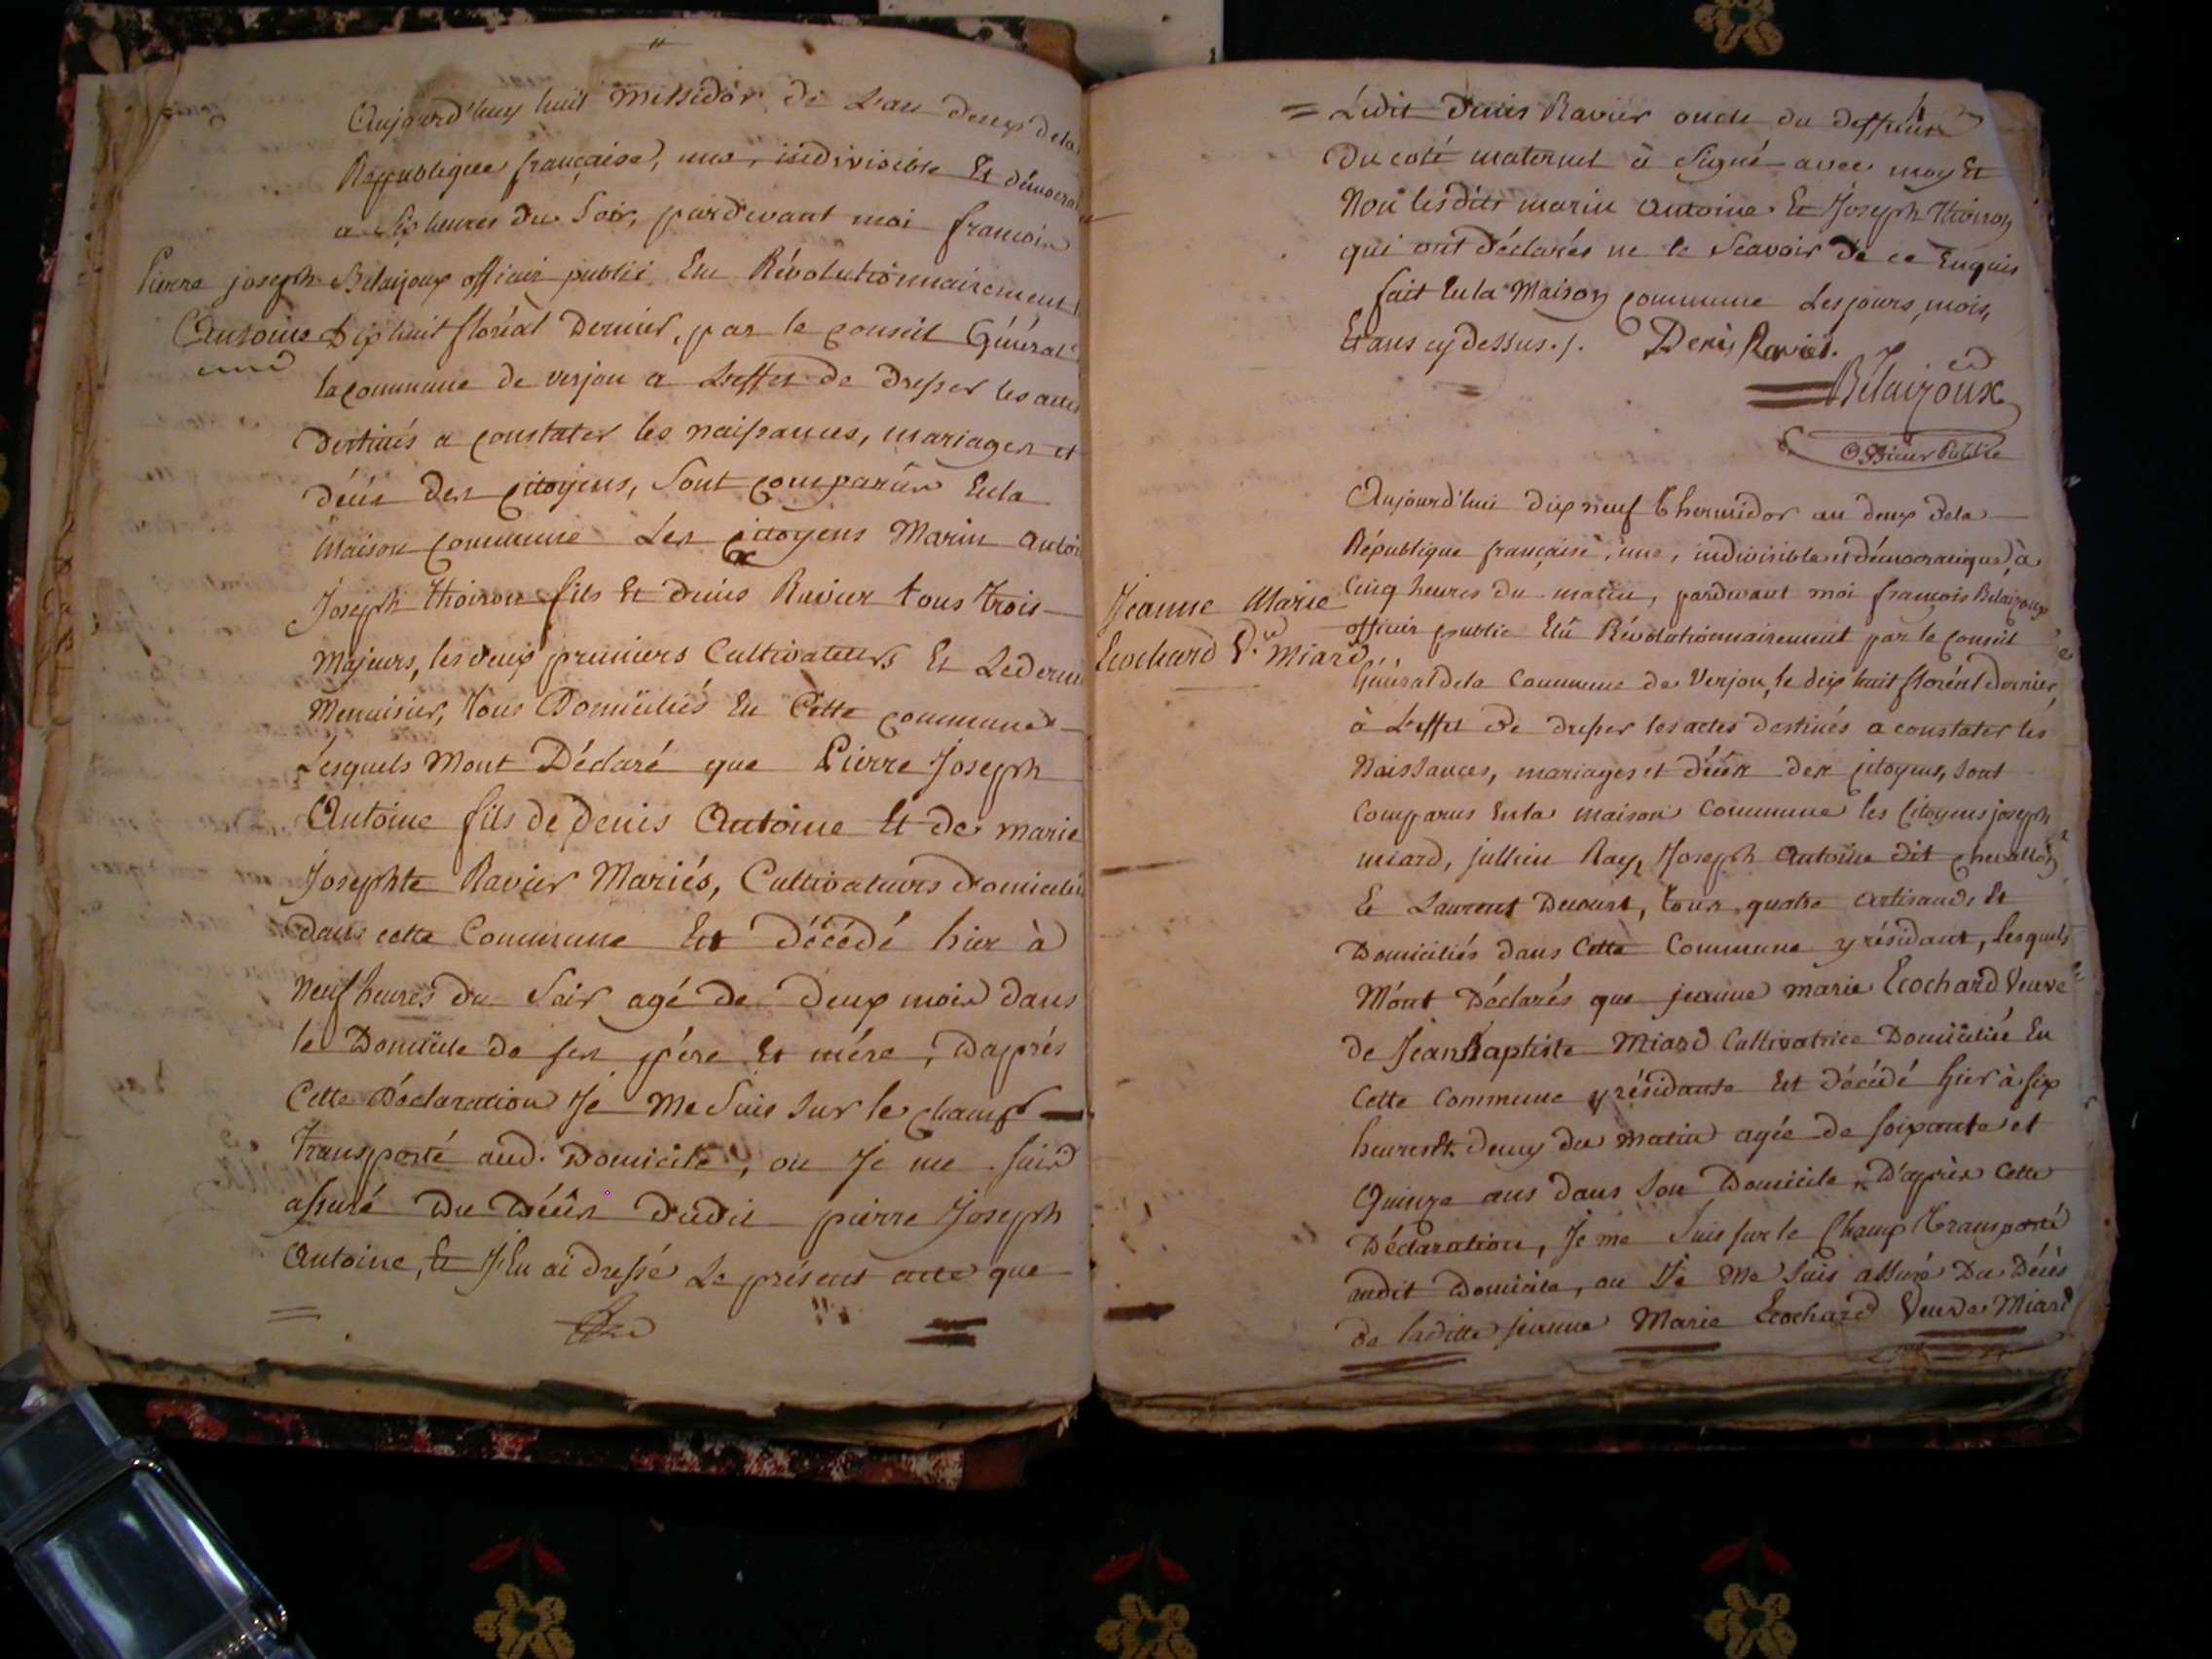 Aujourd'huy huit Messidor de L'an deux dela
Republique française, une, indivisible Et démocra
a Six heures du Soir, pardevant moi francois
Belaizoux officier public Elu Révolutionnairement
Pierre joseph
Antoine
Dix huit floréal Dernier, par le conseil Général
la commune de verjon a L'effet de Dresser les actes
Destinés a constater les naissances, mariages et
décès des citoyens, Sont comparus En la
Maison commune Les citoyens Marin Antoi
Joseph Thoiron fils Et denis Ravier tous trois
Majeurs, les deux premiers Cultivateurs Et Le dernie
Menuisier, tous Domiciliés En Cette commune
Lesquels Mont Déclaré que Pierre Joseph
Antoine fils de Denis Antoine Et de marie
Josephte Ravier Mariés, Cultivateurs domiciliés
dans cette Commune Est décédé hier à
Neuf heures du Soir agé de deux mois dans
le Domicile de ses père Et mére, Daprés
Cette Déclaration Je Me Suis Sur le champ
Transporté aud. Domicile, ou Je me suis
assuré Du Décès dudit pierre Joseph
Antoine, Et J'En ai dressé Le présent acte que
= Ledit denis Ravier oncle du deffunt
Du coté maternel à Signé avec moy Et
Non lesdits marin Antoine Et Joseph Thoiron
qui ont déclarés ne le Scavoir de ce Enquis
fait En la Maison commune Les jours, mois,
Et ans cy dessus ./. Denis Ravier.
Belaizoux
Officier Public
Aujourd'hui dix neuf Thermidor an deux dela
République française, une, indivisible et démocratique, à
Cinq heures du matin, pardevant moi françois Belaizoux
Jeanne Marie
Ecochard Ve. Miard
officier public Elû Révolutionnairement par le conseil
Général dela Commune de Verjon, le dix huit floréal dernier
à L'effet de dresser les actes destinés a constater les
Naissances, mariages et décès des citoyens, sont
Comparus En la maison Commune les Citoyens joseph
miard, jullien Ray, Joseph Antoine dit chevallon
Et Laurent Decourt, tous quatre artisands Et
Domiciliés dans Cette Commune y résidant, lesquels
M'ont Déclarés que jeanne marie Ecochard Veuve
de Jean Baptiste Miard Cultivatrice Domiciliée En
Cette Commune y résidante Est décédé hier à six
heures Et demy du matin agée de soixante et
Quinze ans dans son Domicile, D'après Cette
Déclaration, Je me Suis sur le Champ Transporté
audit Domicile, ou Je Me suis assuré Du Décès
de laditte jeanne Marie Ecochard Veuve Miard